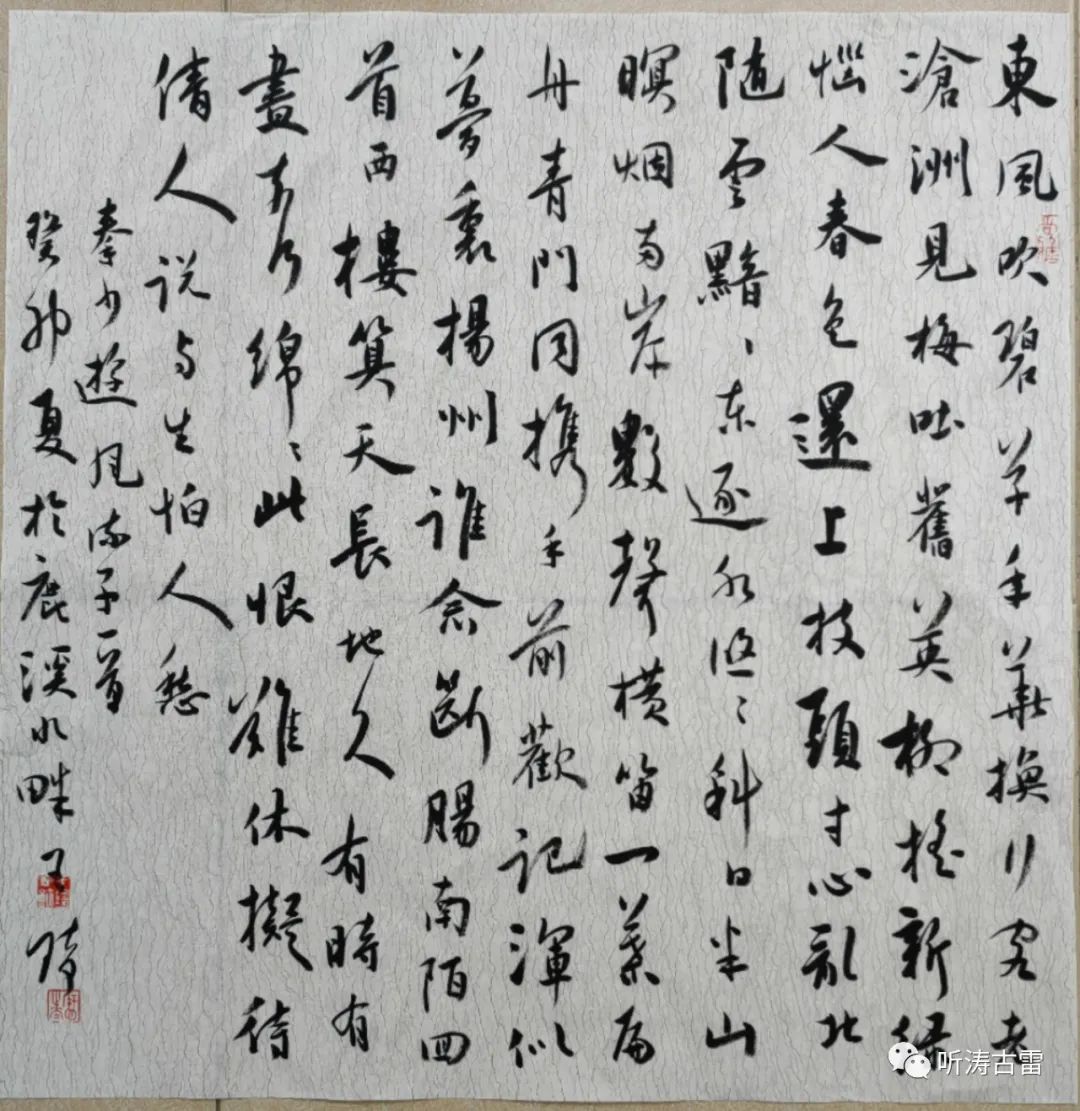 東風吹碧草年華換行客老
滄洲見梅吐舊英柳摇新緑
惱人春色還上枝頭寸心亂北
随雲黯〻東逐水悠〻斜日半山
暝烟两岸數聲橫笛一葉扁
舟青門同携手前歡記渾似
夢裏揚州誰念斷腸南陌回
首西樓算天長地久有時有
盡奈何綿〻此恨難休擬待
倩人説与生怕人愁
秦少遊風流子一首
癸卯夏於鹿溪水畔
听涛古雷